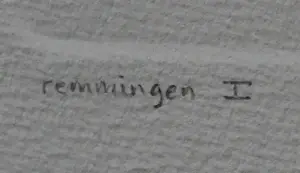 remmingen I